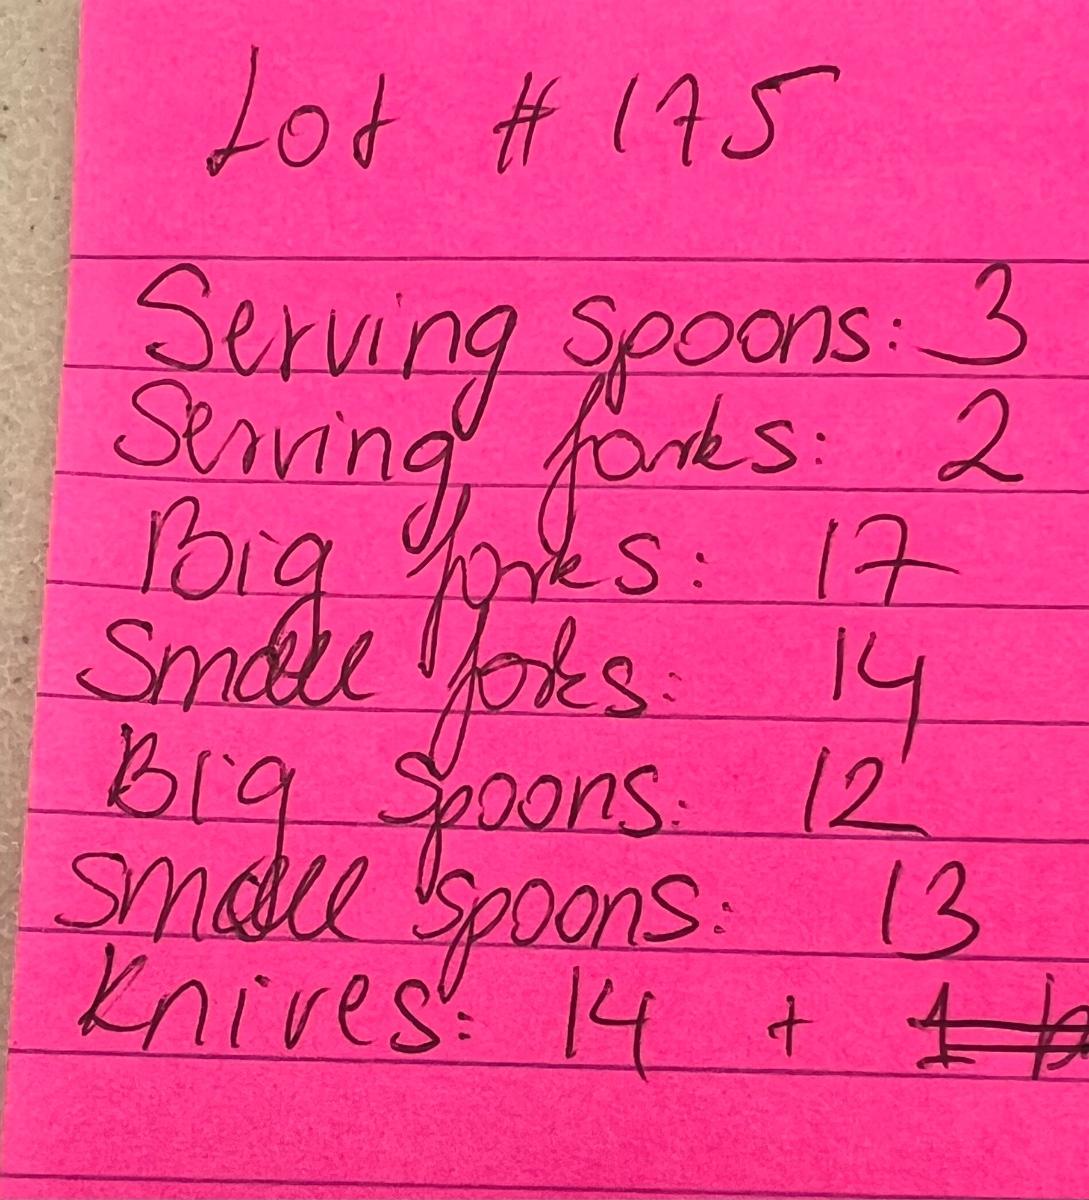 Lot # 175
Serving spoons: 3
Serving forks: 2
Big forks: 17
Small forks: 14
Big Spoons: 12
Small spoons: 13
Knives: 14 + 1